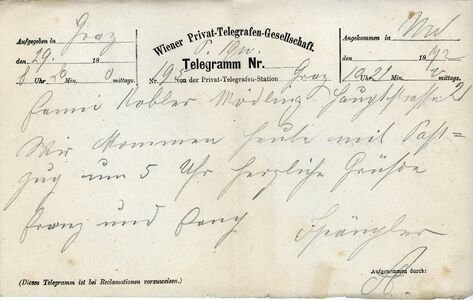 Aufgegeben in Graz
den 29. 18
8 Uhr 20 Min. mittags.
Wiener Privat-Telegrafen-Gesellschaft.
Telegramm Nr.
Nr. 9 von der Privat-Telegrafen-Station Graz
Angekommen in
den 18
10 Uhr 21 Min. mittags.
Fanni Kobler Mödling Hauptstrasse 21
Wir kommen heute mit Post=
zug um 5 Uhr herzliche Grüße
Franz und Fany Spängler
Aufgenommen durch:
(Dieses Telegramm ist bei Reclamationen vorzuweisen.)